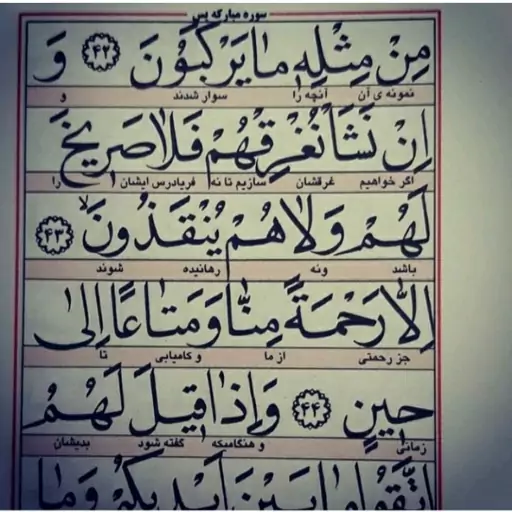 سوره مبارکه یس
مِنْ مِثْلِهِ مٰا یَرْکَبُونَ ﴿۴۲﴾ وَ
نمونه ی آن آنچه را سوار شدند و
اِنْ نَشَأْ نُغْرِقْهُمْ فَلاٰ صَرِیخَ
اگر خواهیم غرقشان سازیم تا نه فریادرس ایشان را
لَهُمْ وَلاٰ هُمْ یُنْقَذُونَ ﴿۴۳﴾
باشد ونه رهانیده شوند
اِلاّٰ رَحْمَةً مِنّٰا وَ مَتٰاعًا اِلیٰ
جز رحمتی از ما و کامیابی تا
حینٍ ﴿۴۴﴾ وَ اِذٰا قیلَ لَهُمُ
زمانی و هنگامیکه گفته شود بدیشان
اتَّقُوا مٰا بَیْنَ اَیْدیکُمْ وَ مٰا